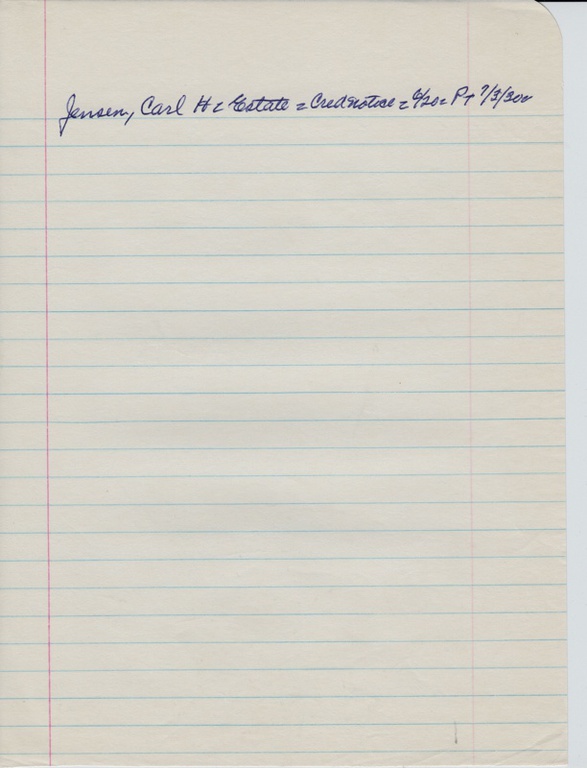 Jensen, Carl H = Estate = Cred notice = 6/20 = Pt 7/3/30